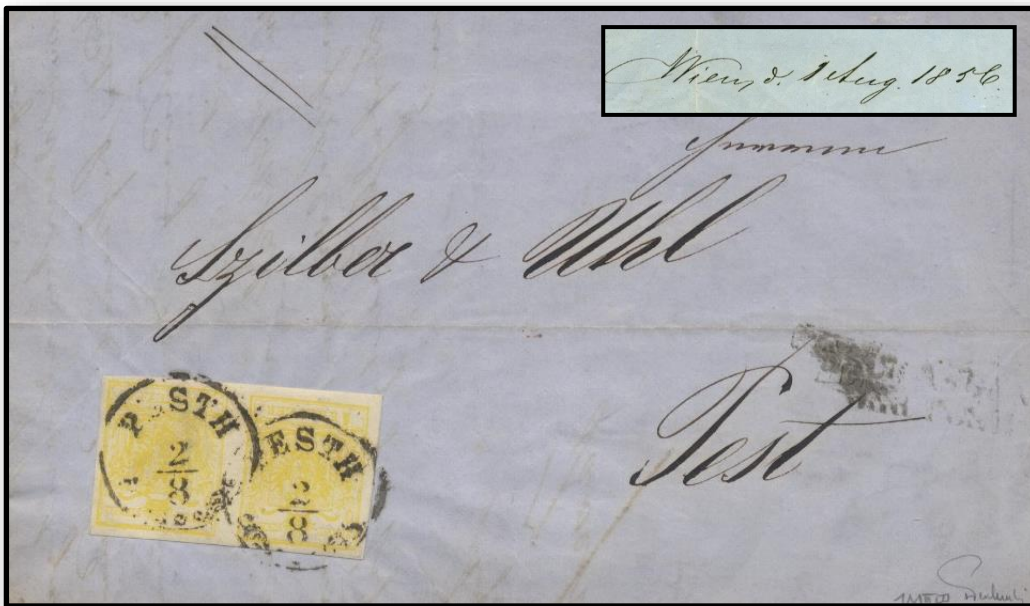 Wien, d. 1 Aug. 1856.
Szilber & Uhl
Pest
PESTH
2/8
PESTH
2/8